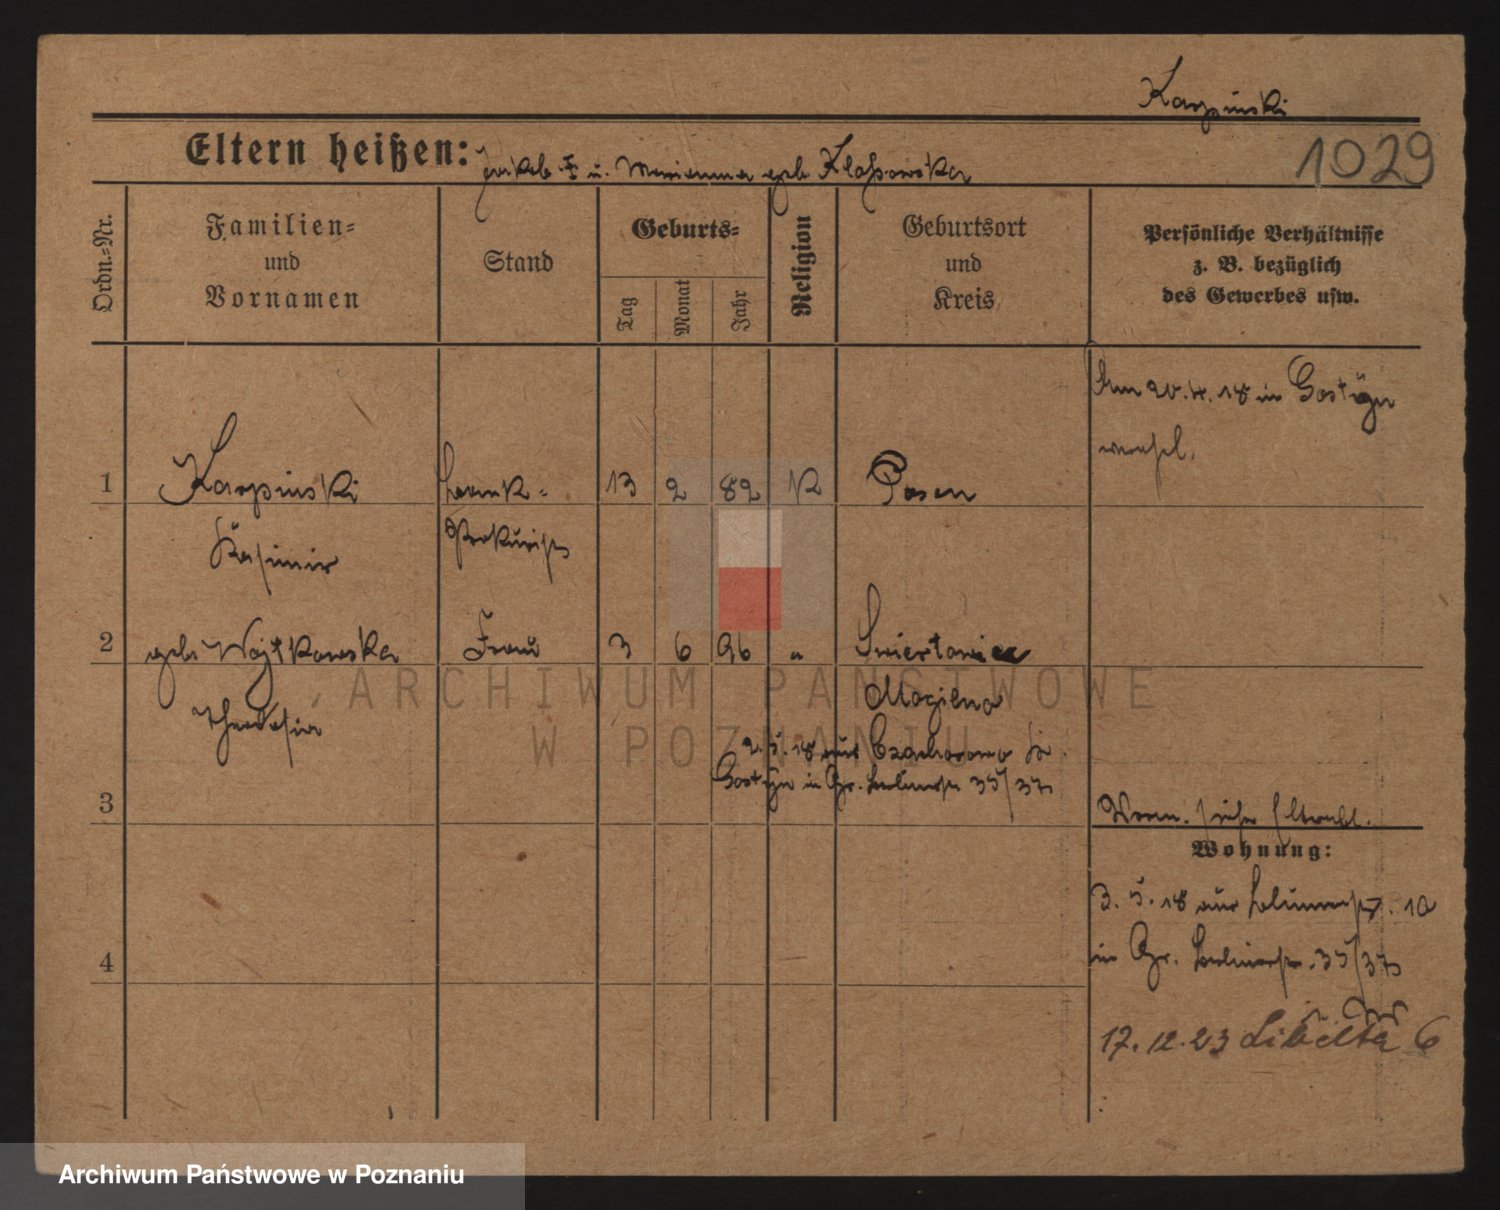 Karpinski
1029
Eltern heißen: Jakob F u. Marianna geb Klossowska
Ordn.=Nr.
Familien=
und
Vornamen
Stand
Geburts=
Tag
Monat
Jahr
Religion
Geburtsort
und
Kreis
Persönliche Verhältnisse
z. B. bezüglich
des Gewerbes usw.
Am 20.4.18 in Gostÿn
verehel.
1 Karpinski Bank= 13 2 82 K Posen
Kasimir Prokurist
2 geb. Wojtkowska Frau 3 6 96 " Swierkowiec
Theodosia Mogilno
2.5.18 aus Czachorowo Kr
Gostÿn in Gr. Berlinerstr 35/37
3
Verm. siehe
Wohnung:
3. 5. 18 aus Blumenstr. 10
in Gr. Berlinerstr. 35/37
4
17.12.23 Libelta 6
ARCHIWUM PAŃSTWOWE
W POZNANIU
Archiwum Państwowe w Poznaniu